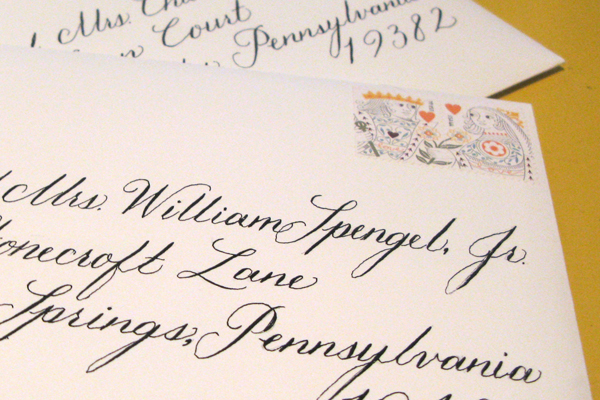 Mrs.
Court
Pennsylvania
19382
Mrs. William Spengel, Jr.
Stonecroft Lane
Springs, Pennsylvania